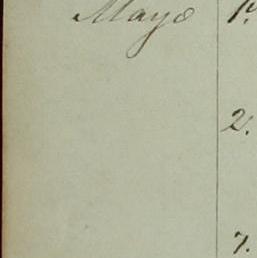 Mayo 1º.
2.
7.